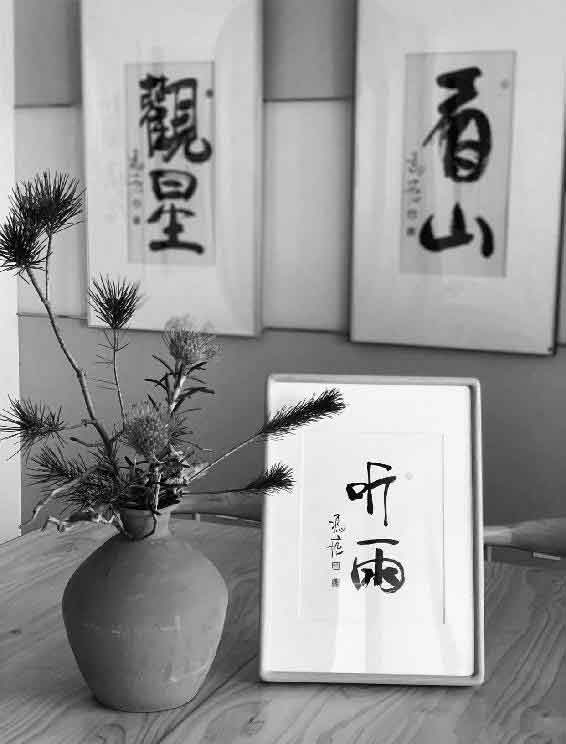 觀星
看山
听雨